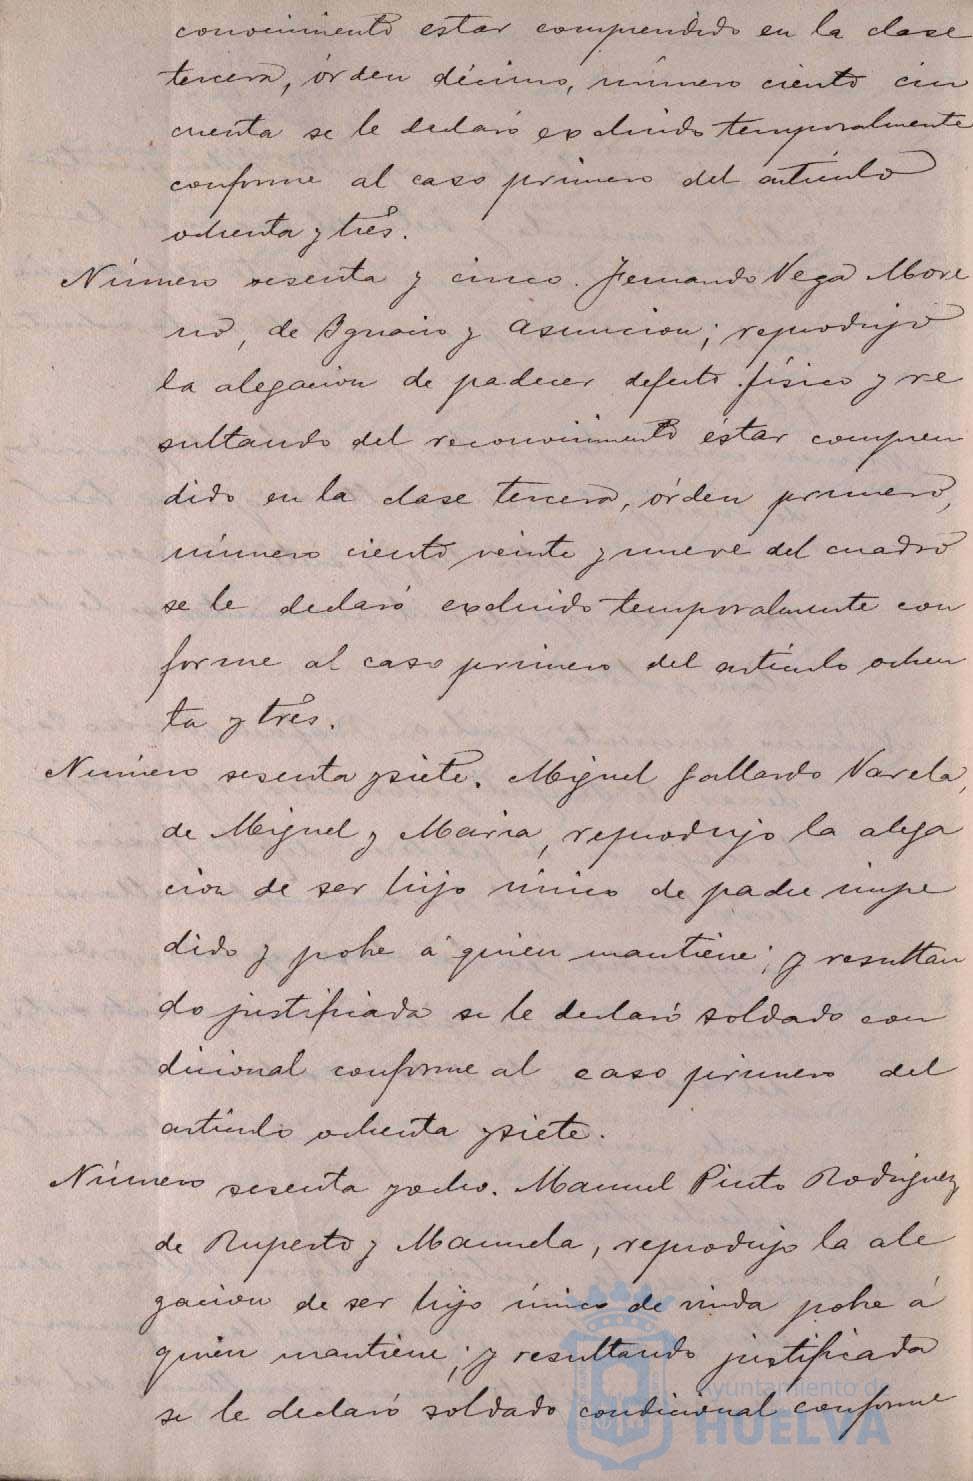 conocimiento estar comprendido en la clase
tercera, órden décimo, número ciento cin
cuenta se le declaró excluido temporalmente
conforme al caso primero del artículo
ochenta y tres.
Número sesenta y cinco. Fernando Vega More
no, de Ignacio y Asuncion; reprodujo
la alegacion de padecer defecto físico y re
sultando del reconocimiento éstar compren
dido en la clase tercera, órden primero,
número ciento veinte y nueve del cuadro
se le declaró excluido temporalmente con
forme al caso primero del artículo ochen
ta y tres.
Número sesenta y siete. Miguel Gallardo Varela,
de Miguel y Maria, reprodujo la alega
cion de ser hijo único de padre impe
dido y pobre á quien mantiene; y resultan
do justificada se le declaró soldado con
dicional conforme al caso primero del
artículo ochenta y siete.
Número sesenta y ocho. Manuel Pinto Rodriguez
de Ruperto y Manuela, reprodujo la ale
gacion de ser hijo único de viuda pobre á
quien mantiene; y resultando justificada
se le declaró soldado condicional conforme
Ayuntamiento de
HUELVA